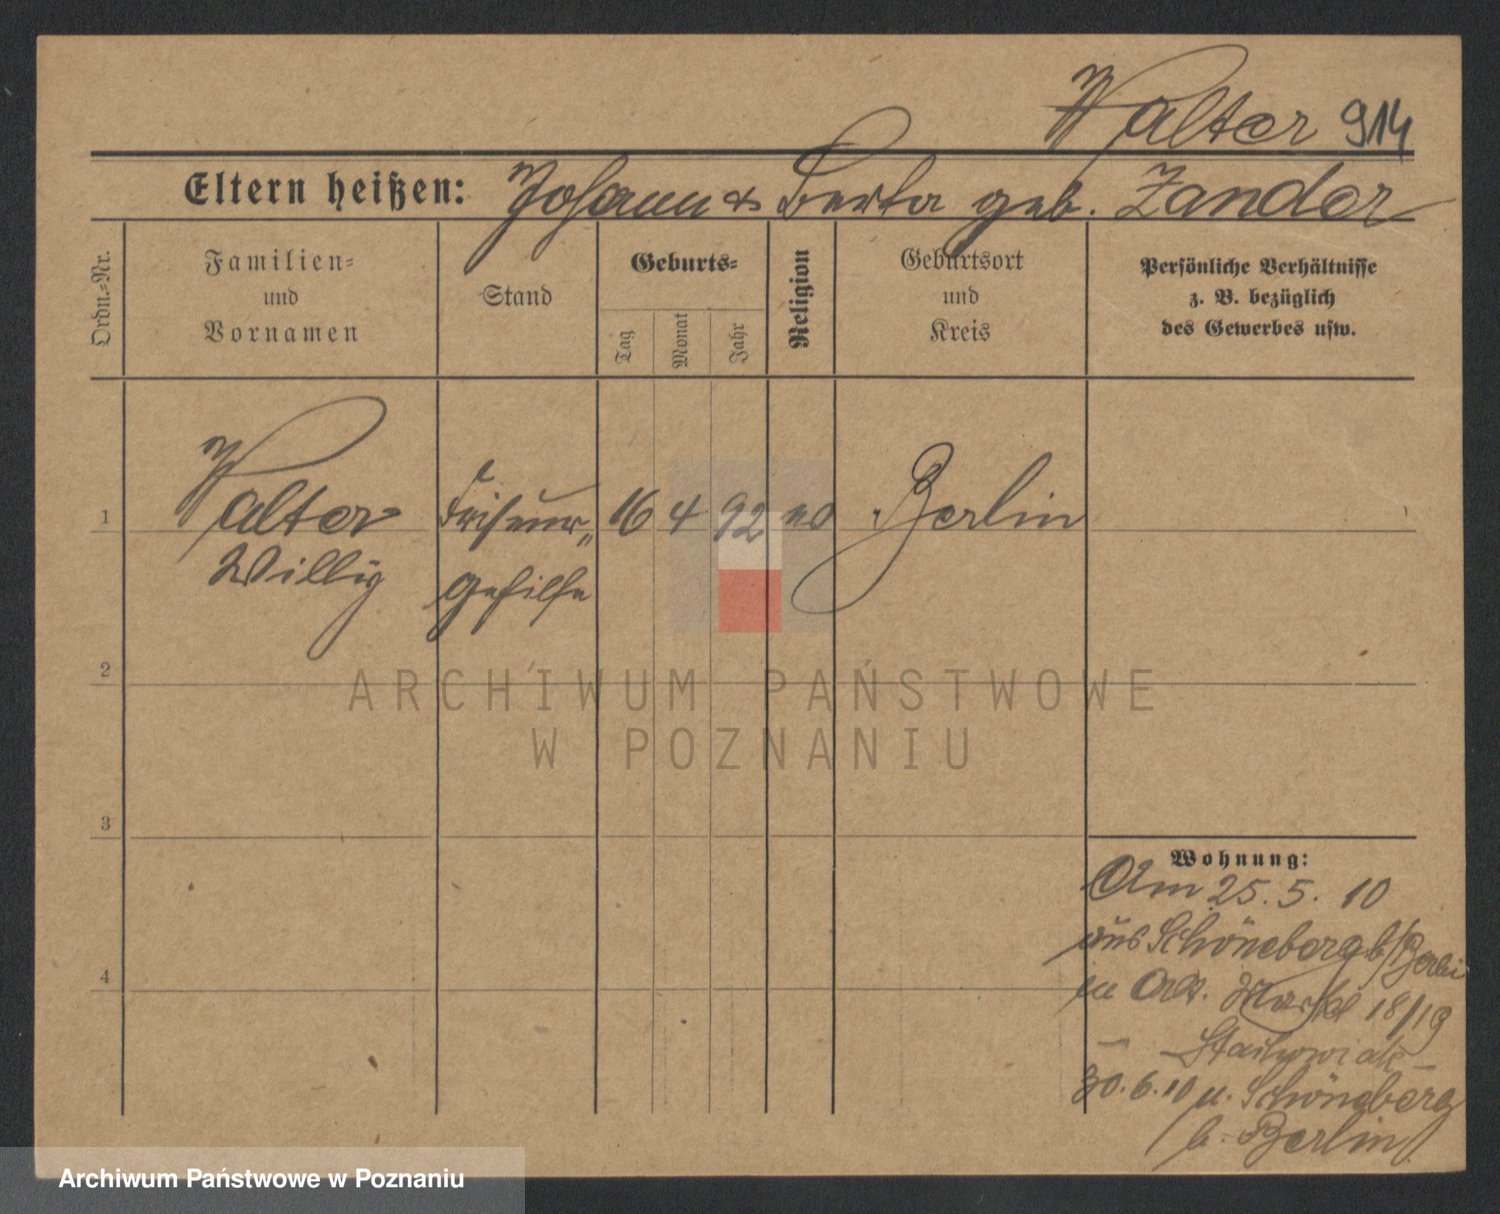 Walter 914
Eltern heißen: Johann & Berta geb. Zander
Ordn.-Nr.
Familien-
und
Vornamen
Stand
Geburts-
Tag
Monat
Jahr
Religion
Geburtsort
und
Kreis
Persönliche Verhältnisse
z. B. bezüglich
des Gewerbes usw.
1 Walter Friseur- 16 4 92 Berlin
Willy gehilfe
2
3
4
Wohnung:
Am 25. 5. 10
aus Schöneberg b/Berlin
in Markt 18/19
30. 6. 10 n. Schöneberg
b. Berlin
ARCHIWUM PAŃSTWOWE
W POZNANIU
Archiwum Państwowe w Poznaniu